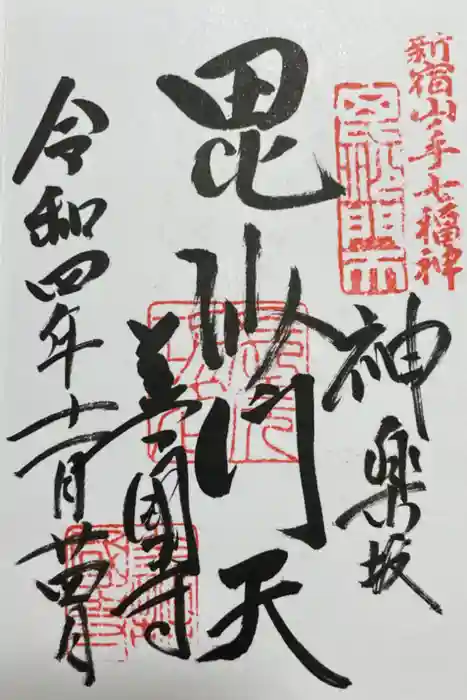 新宿山ノ手七福神
神楽坂
毘沙門天
善國寺
令和四年十一月廿四日